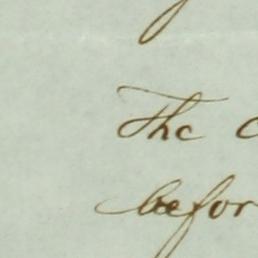 The
befor